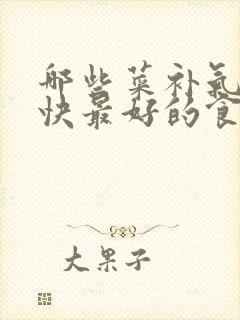 哪些菜补气
快最好的食
大果子